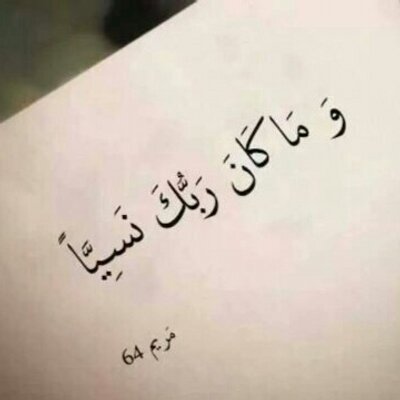 وَ مَا كَانَ رَبُّكَ نَسِيَّاً
مَريم 64